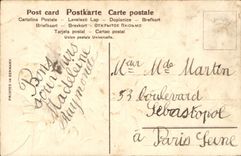 Post card Postkarte Carte postale
Cartolina Postale Levelező Lap Dopisnice Brefkort
Briefkaart Brevkort ОТКРЫТОЕ ПИСЬМО
Tarjeta postal Cartao postal
Union postale Universelle.
PRINTED IN GERMANY
Bons
Souvenirs
Madeleine
Raymond
Mr Mde Martin
53 boulevard
Sebastopol
à Paris Seine